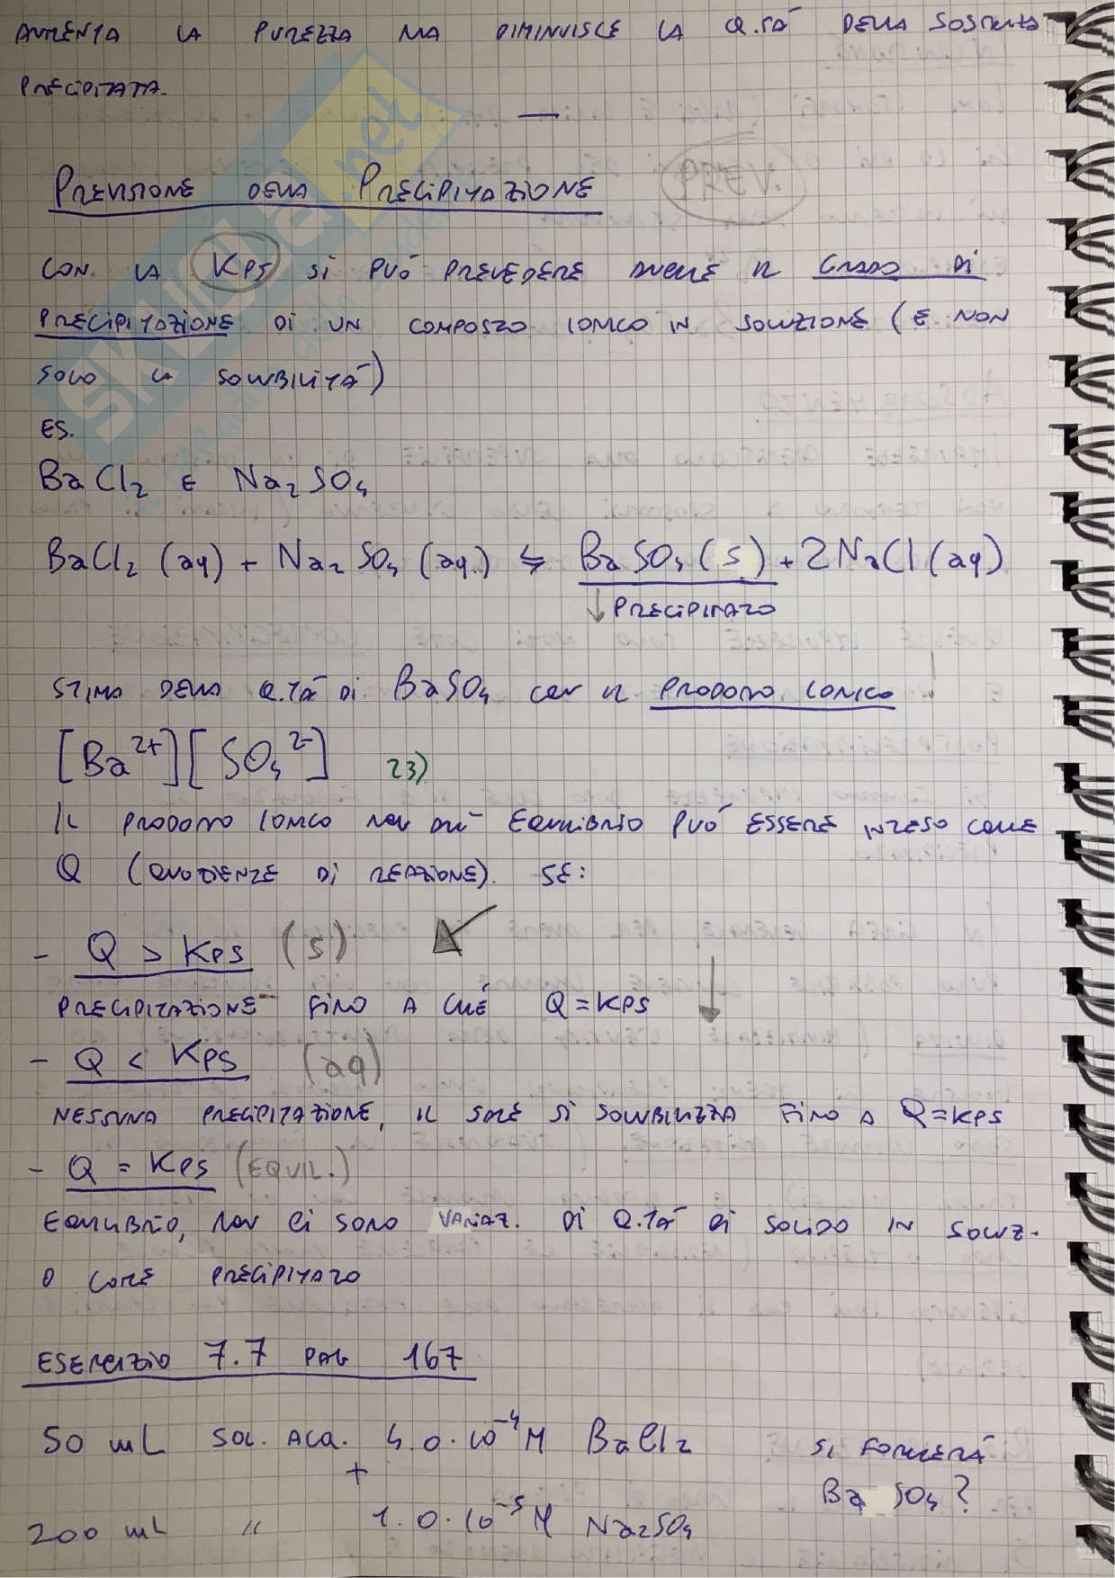 AUMENTA LA PUREZZA MA DIMINUISCE LA Q.TÀ DELLA SOSTANZA
PRECIPITATA.
PREVISIONE DELLA PRECIPITAZIONE
CON LA KPS SI PUÓ PREVEDERE ANCHE IL GRADO DI
PRECIPITAZIONE DI UN COMPOSTO IONICO IN SOLUZIONE (E NON
SOLO LA SOLUBILITÀ)
ES.
BaCl₂ E Na₂SO₄
BaCl₂ (aq) + Na₂SO₄ (aq.) ⇆ BaSO₄ (s) + 2NaCl (aq)
↓ PRECIPITATO
STIMA DELLA Q.TÀ DI BaSO₄ CON IL PRODOTTO IONICO
[Ba²⁺][SO₄²⁻] 23)
IL PRODOTTO IONICO NON ALL' EQUILIBRIO PUÓ ESSERE INTESO COME
Q (QUOZIENTE DI REAZIONE). SE:
- Q > KPS (s)
PRECIPITAZIONE FINO A CHE Q = KPS
- Q < KPS (aq)
NESSUNA PRECIPITAZIONE, IL SALE SI SOLUBILIZZA FINO A Q = KPS
- Q = KPS (EQUIL.)
EQUILIBRIO, NON CI SONO VARIAZ. DI Q.TÀ DI SOLIDO IN SOLUZ.
O COME PRECIPITATO
ESERCIZIO 7.7 PAG 167
50 mL SOL. ACQ. 4.0·10⁻⁴ M BaCl₂ SI FORMERÀ
+ BaSO₄?
200 mL " 1.0·10⁻⁵ M Na₂SO₄
skuola.net